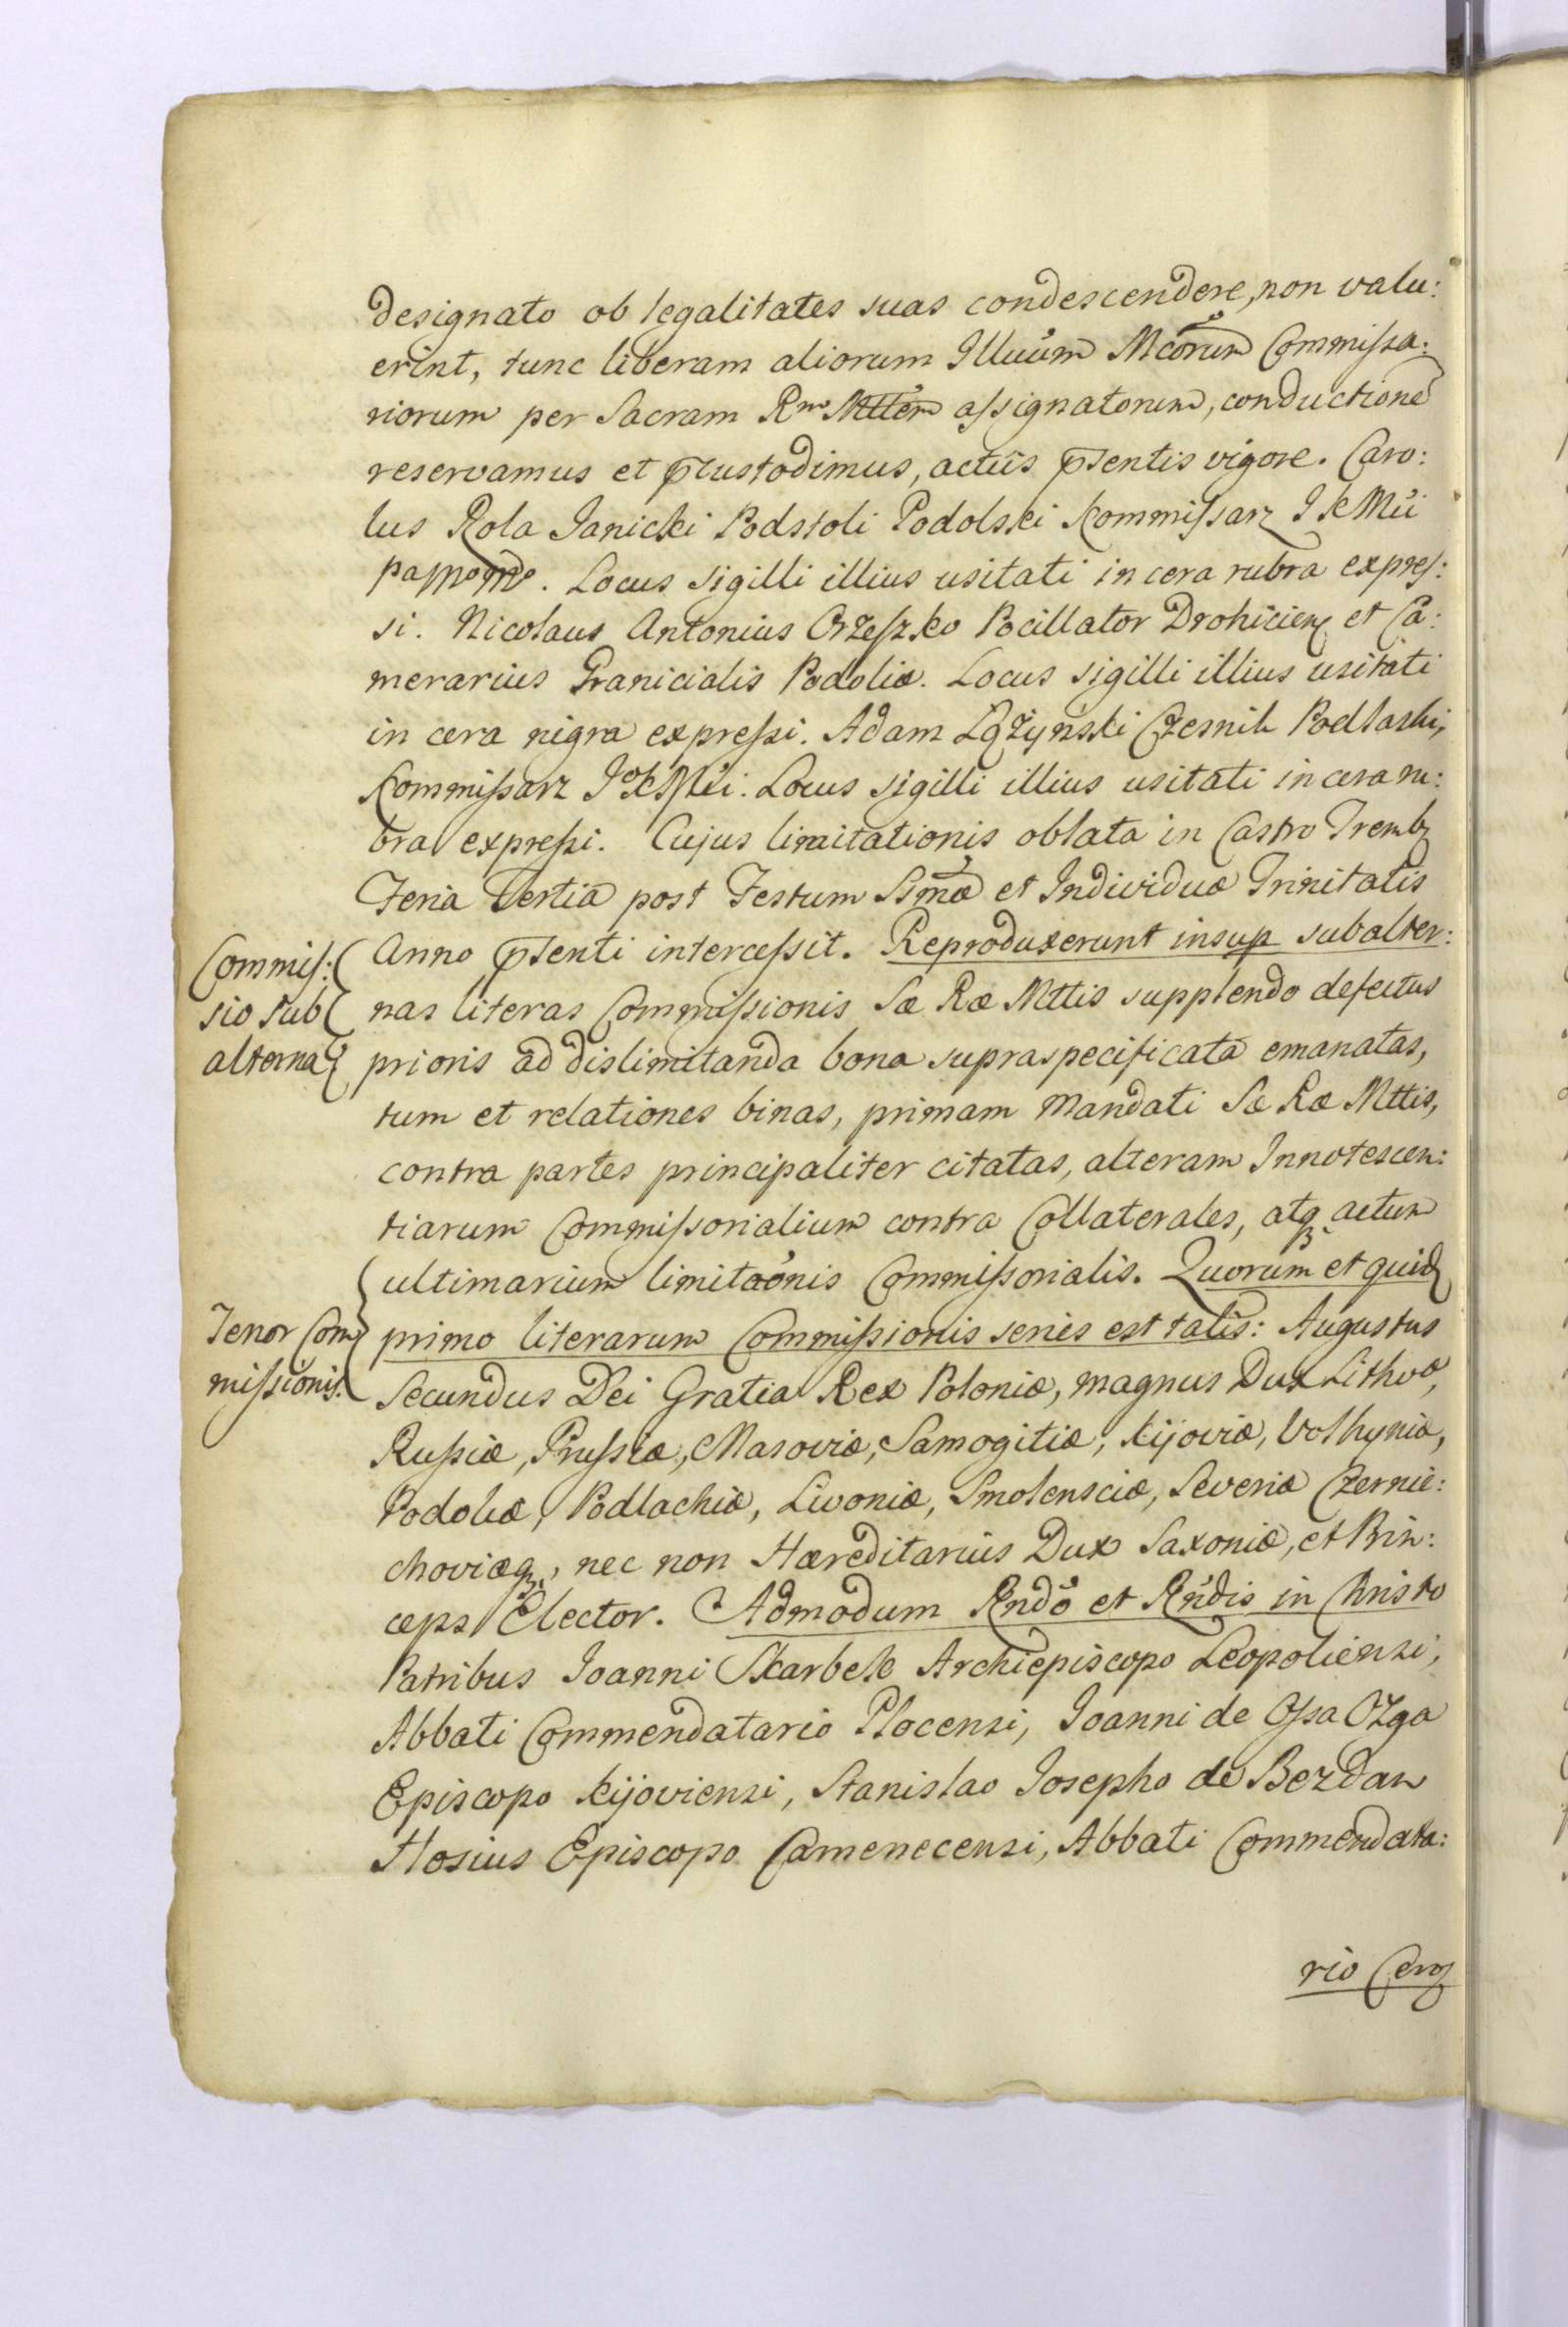 designato ob legalitates suas condescendere, non valu:
erint, tunc liberam aliorum Illuum Mcorum Commissa:
riorum per Sacram Rm Mttem assignatorum, conductione
reservamus et pcustodimus, actus psentis vigore. Caro:
lus Rola Janicki Podstoli Podolski Kommissarz JKMci
Locus sigilli illius usitati in cera rubra expres:
si. Nicolaus Antonius Orzeszko Pocillator Drohicien et Ca:
merarius Granicialis Podoliæ. Locus sigilli illius usitati
in cera nigra expressi. Adam Łążyński Czesnik Podlaski,
Kommissarz JKMci. Locus sigilli illius usitati in cera ru:
bra expressi. Cujus limitationis oblata in Castro Tremb
Feria Tertia post Festum Ssmæ et Individuæ Trinitatis
Commis:
sio sub
alterna
Anno psenti intercessit. Reproduxerunt insup subalter:
nas literas Commissionis Sæ Ræ Mttis supplendo defectus
prioris ad dislimitanda bona supraspecificata emanatas,
tum et relationes binas, primam Mandati Sæ Ræ Mttis,
contra partes principaliter citatas, alteram Innotescen:
tiarum Commissorialium contra Collaterales, atq actum
ultimarium limitaonis Commissorialis. Quorum et quid
Tenor Com
missionis.
primo literarum Commissionis series est talis: Augustus
Secundus Dei Gratia Rex Poloniæ, magnus Dux Lithvæ,
Russiæ, Prussiæ, Masoviæ, Samogitiæ, Kijoviæ, Volhyniæ,
Podoliæ, Podlachiæ, Livoniæ, Smolensciæ, Severiæ Czernie:
choviæq, nec non Hæreditarius Dux Saxoniæ, et Prin:
ceps Elector. Admodum Rndo et Rndis in Christo
Patribus Joanni Skarbek Archiepiscopo Leopoliensi,
Abbati Commendatario Plocensi, Joanni de Ossa Ożga
Episcopo Kijoviensi, Stanislao Josepho de Bezdan
Hosius Episcopo Camenecensi, Abbati Commendata:
rio